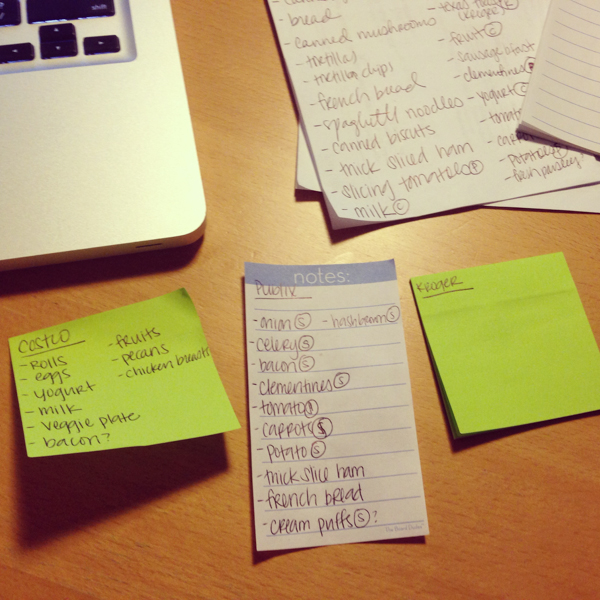 shift
- bread
- canned mushrooms
- tortillas
- tortilla chips
- french bread
- spaghetti noodles
- canned biscuits
- thick sliced ham
- slicing tomatoes
- milk C
(kroger)
- fruit C
- sausage
- clementines
- yogurt C
- potato
- fresh parsley
costco
- rolls
- eggs
- yogurt
- milk
- veggie plate
- bacon?
- fruits
- pecans
- chicken breasts
notes:
Publix
- onion S - hashbrown S
- celery S
- bacon S
- clementines S
- tomato S
- carrots S
- potato S
- thick slice ham
- french bread
- cream puffs S ?
Kroger